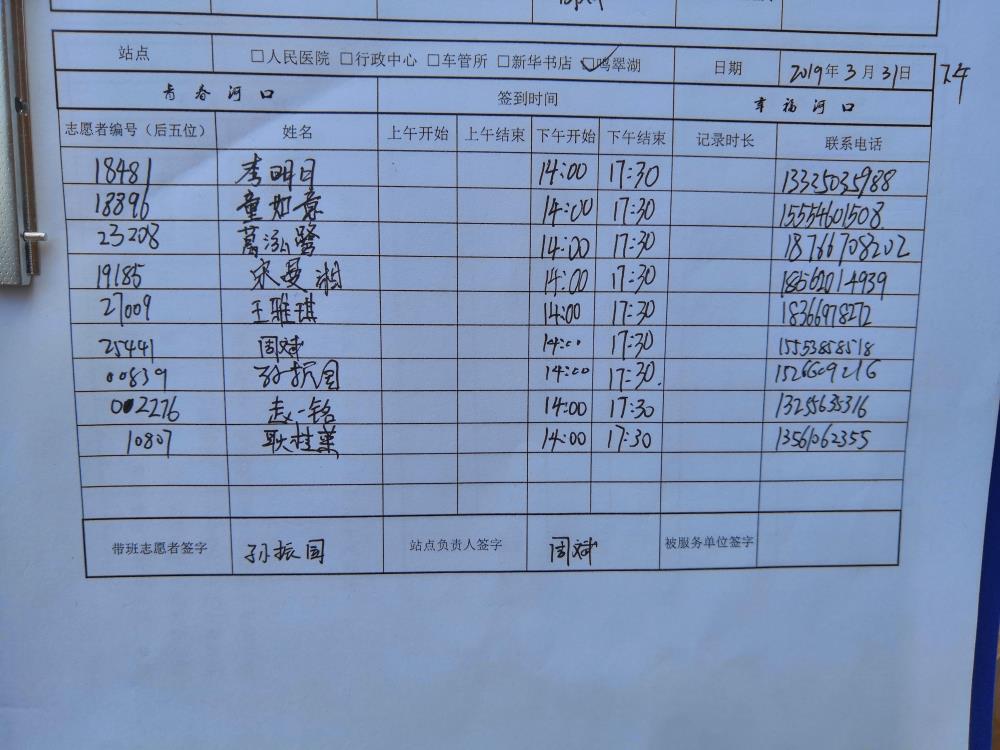 站点 □人民医院 □行政中心 □车管所 □新华书店 ☑鸣翠湖 日期 2019年3月31日 下午
青春河口 签到时间 幸福河口
志愿者编号（后五位） 姓名 上午开始 上午结束 下午开始 下午结束 记录时长 联系电话
18481 李明日 14:00 17:30 13325035988
18896 童如意 14:00 17:30 15554601508
23208 葛泓鹭 14:00 17:30 18766708202
19185 宋曼湘 14:00 17:30 18562014939
27009 王雅琪 14:00 17:30 18366978272
25441 周斌 14:00 17:30 15553858518
00839 孙振国 14:00 17:30. 
002276 赵一铭 14:00 17:30 13255635316
10807 耿桂 14:00 17:30 13561062355
带班志愿者签字 孙振国 站点负责人签字 周斌 被服务单位签字